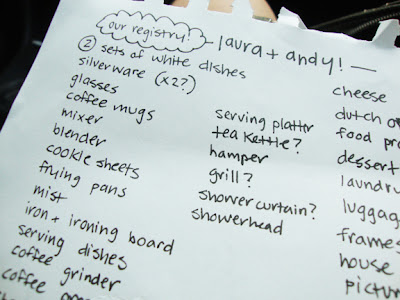 our registry!
- laura + andy! -
② sets of white dishes
silverware (x2?)
glasses
coffee mugs
mixer
blender
cookie sheets
frying pans
mist
iron + ironing board
serving dishes
coffee grinder
coffee
serving platter
tea kettle?
hamper
grill?
shower curtain?
showerhead
cheese
dutch
food
dessert
frames
house